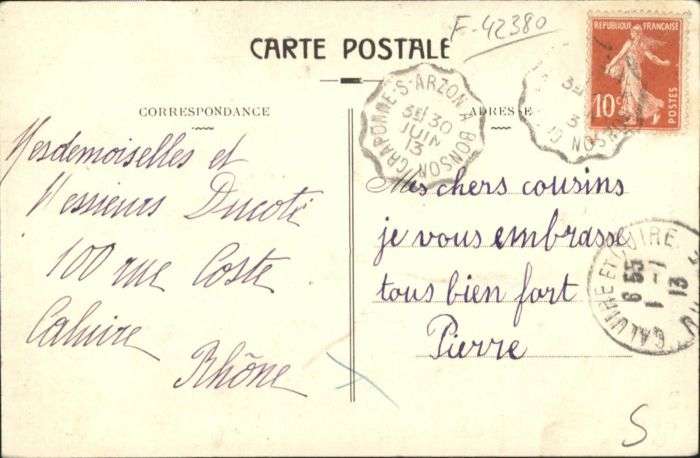 F-42380
CARTE POSTALE
CORRESPONDANCE
ADRESSE
REPUBLIQUE FRANÇAISE
10c
POSTES
CRAPONNE-S-ARZON A BONSON
3E 30
JUIN
13
Mesdemoiselles et
Messieurs Ducoté
100 rue Coste
Caluire
Rhône
Mes chers cousins
je vous embrasse
tous bien fort
Pierre
CALUIRE ET CUIRE
6 55
1 - 7
13
S